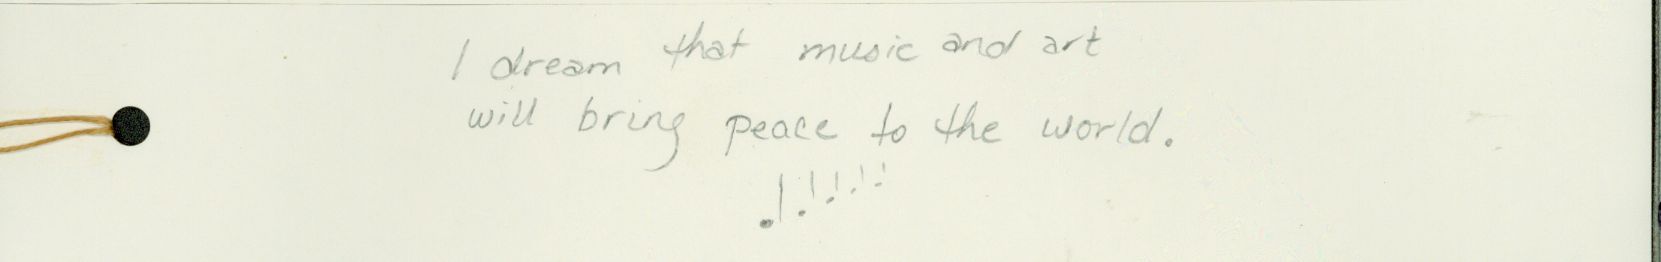 I dream that music and art
will bring peace to the world.
!!!!!